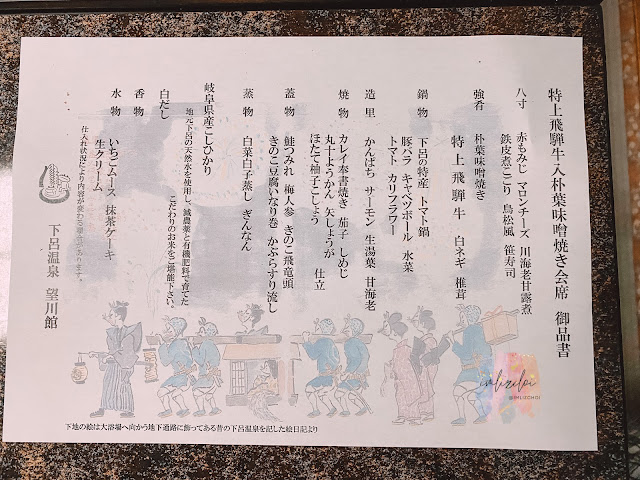 特上飛騨牛入朴葉味噌焼き会席　御品書
八寸　赤もみじ　マロンチーズ　川海老甘露煮
鉄皮煮こごり　鳥松風　笹寿司
強肴　朴葉味噌焼き
特上飛騨牛　白ネギ　椎茸
鍋物　下呂の特産　トマト鍋
豚バラ　キャベツボール　水菜
トマト　カリフラワー
造里　かんぱち　サーモン　生湯葉　甘海老
焼物　カレイ奉書焼き　茄子　しめじ
丸十ようかん　矢しょうが
ほたて柚子こしょう　仕立
蓋物　鮭つみれ　梅人参　きのこ飛竜頭
きのこ豆腐いなり巻　かぶらすり流し
蒸物　白菜白子蒸し　ぎんなん
岐阜県産こしひかり
地元下呂の天然水を使用し、減農薬と有機肥料で育てた
こだわりのお米をご堪能下さい。
白だし
香物
水物　いちごムース　抹茶ケーキ
生クリーム
仕入れ状況により内容が変わる場合があります。
下呂温泉　望川館
下地の絵は大浴場へ向かう地下通路に飾ってある昔の下呂温泉を記した絵日記より